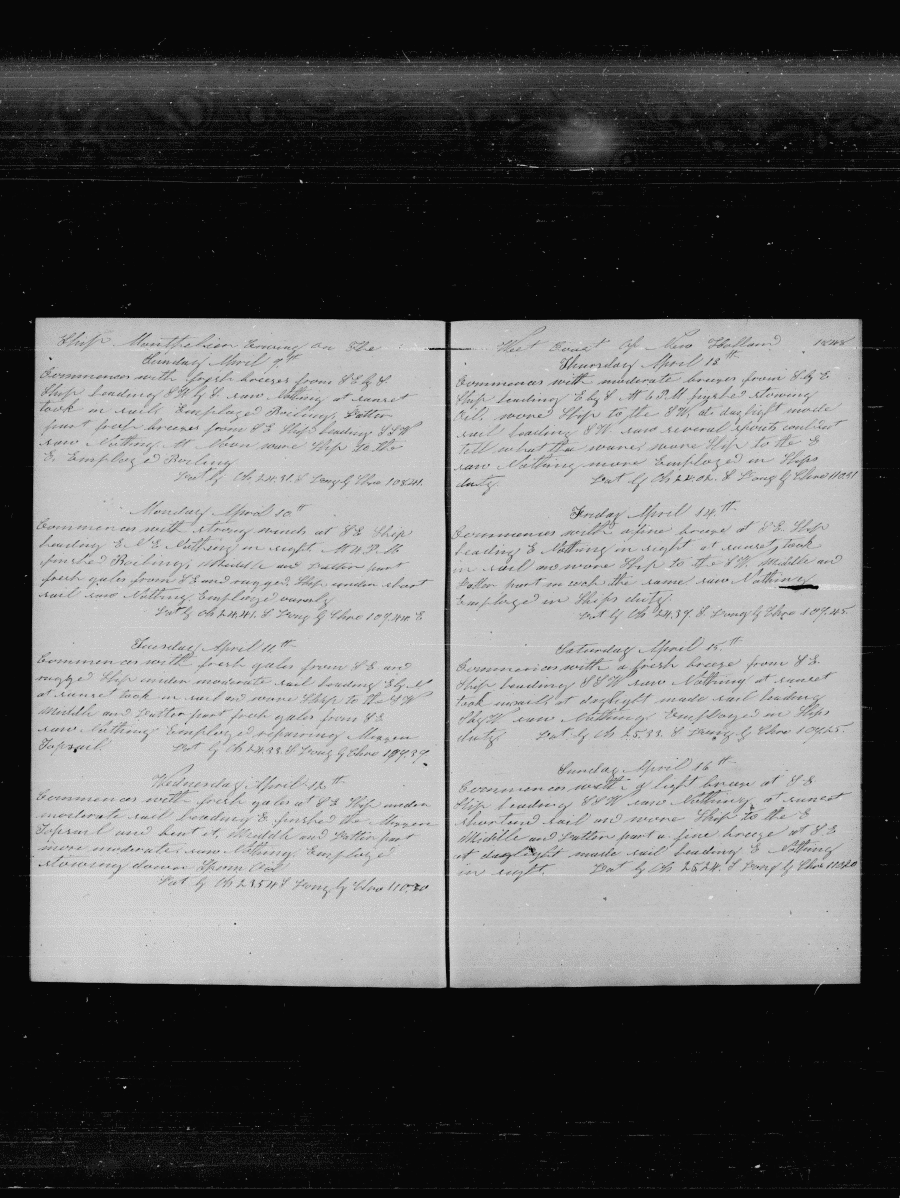 Ship Cruising on The
Sunday April 9th
Commences with fresh breezes from S E by S
Ship heading S W by S saw Nothing at sunset
took in sail Employed Boiling, Latter
part fresh breezes from S E Ship heading S S W
saw Nothing At Noon wore Ship to the
E. Employed Boiling
Lat by Ob 24.31. S Long by Chro 108.41.
Monday April 10th
Commences with strong winds at S E Ship
heading E N E Nothing in sight At 4 P. M
finished Boiling, Middle and Latter part
fresh gales from S E and rugged, Ship under short
sail saw Nothing Employed variously
Lat by Ob 24.41. S Long by Chro 109.40 E
Tuesday April 11th
Commences with fresh gales from S E and
rugged Ship under moderate sail heading E by N
at sunset took in sail and wore Ship to the S W
Middle and Latter part fresh gales from S E
saw Nothing Employed repairing Mizzen
Topsail Lat by Ob 24.33. S Long by Chro 109.37
Wednesday April 12th
Commences with fresh gales at S E Ship under
moderate sail heading E finished the Mizzen
Topsail and bent it, Middle and Latter part
more moderate saw Nothing, Employed
stowing down Sperm Oil
Lat by Ob 23.54 S Long by Chro 110.30
West Coast Of New Holland 1848
Thursday April 13th
Commences with moderate breezes from S by E
Ship heading E by S At 6 P. M finished stowing
Oil. wore Ship to the S W. at daylight made
sail heading S W. saw several spouts could not
tell what the wore Ship to the E
saw Nothing more Employed in Ships
duty Lat by Ob 24.02. S Long by Chro 110.31
Friday April 14th
Commences with a fine breeze at S E. Ship
heading E Nothing in sight at sunset, took
in sail and wore Ship to the S W. Middle and
Latter part much the same saw Nothing
Employed in Ships duty
Lat by Ob 24.37. S Long by Chro 109.45
Saturday April 15th
Commences with a fresh breeze from S E.
Ship heading S S W saw Nothing at sunset
took in sail at daylight made sail heading
S by W saw Nothing Employed in Ships
duty Lat by Ob 25.33. S Long by Chro 109.25.
Sunday April 16th
Commences with a light breeze at S E
Ship heading S S W saw Nothing, at sunset
shortened sail and wore Ship to the E
Middle and Latter part a fine breeze at S E
at daylight made sail heading E Nothing
in sight. Lat by Ob 25.24. S Long by Chro